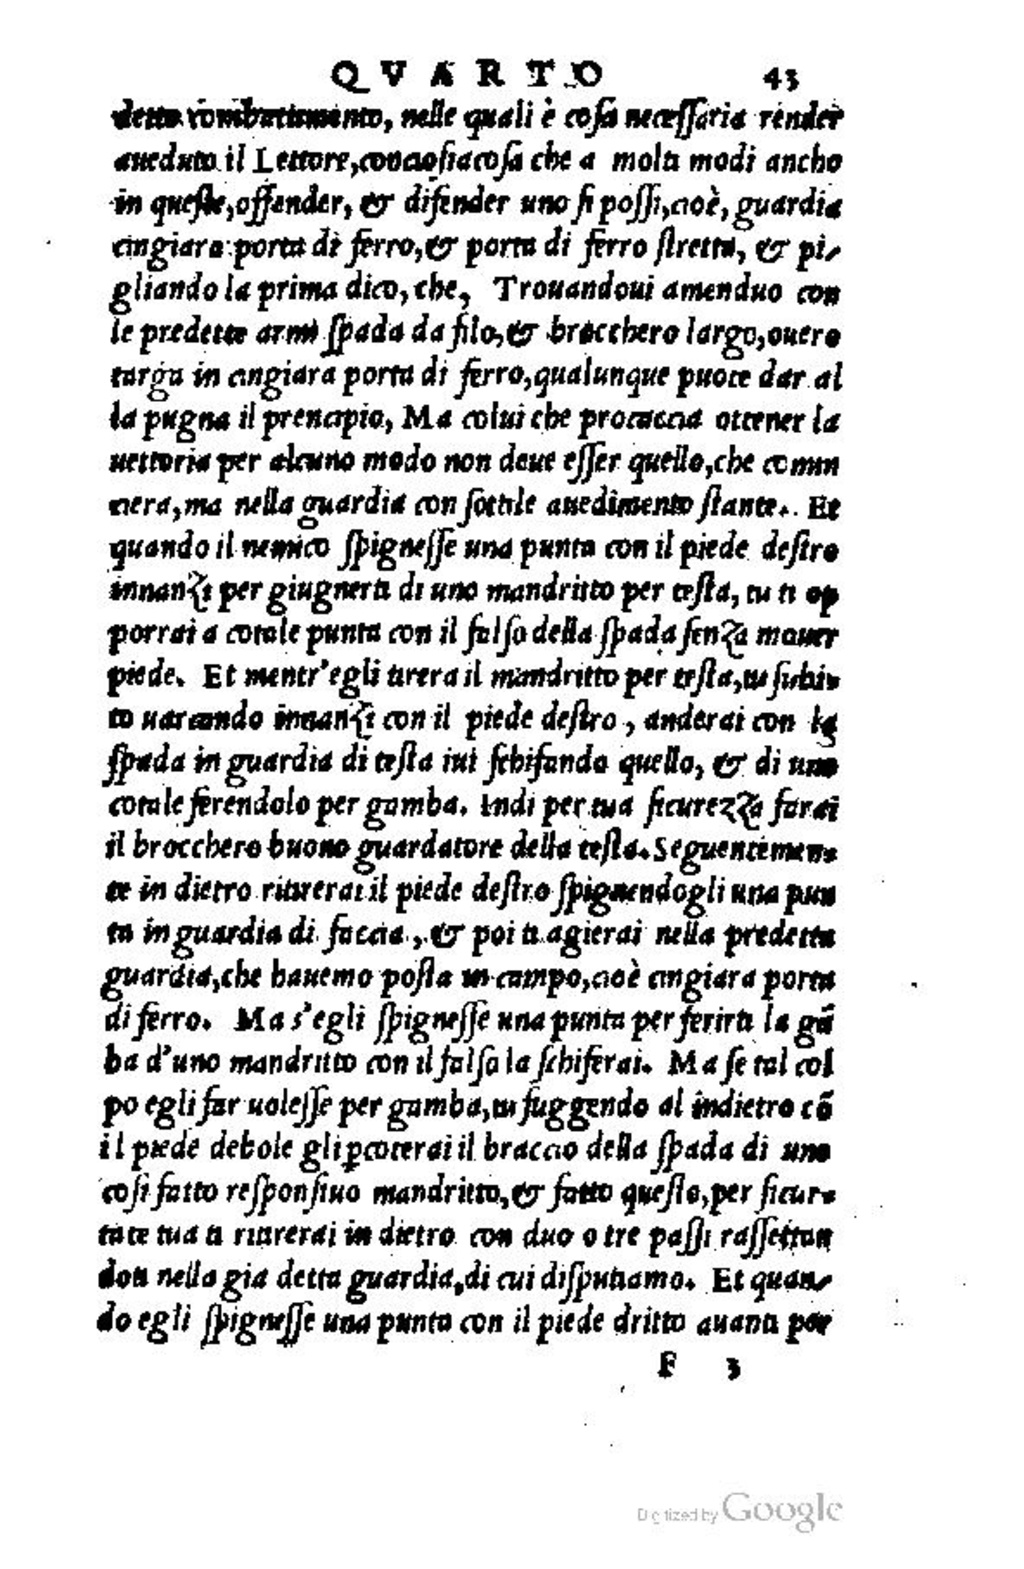 QVARTO 43
detto combattimento, nelle quali è cosa necessaria render
aueduto il Lettore, conciosiacosa che a molti modi ancho
in queste, offender, & difender uno si possi, cioè, guardia
cingiara porta di ferro, & porta di ferro stretta, & pi-
gliando la prima dico, che, Trouandoui amenduo con
le predette armi spada da filo, & brocchero largo, ouero
targa in cingiara porta di ferro, qualunque puote dar al
la pugna il prencipio, Ma colui che procaccia ottener la
uettoria per alcuno modo non deue esser quello, che comin
ciera, ma nella guardia con sottile auedimento stante. Et
quando il nemico spignesse una punta con il piede destro
innanzi per giugnerti di uno mandritto per testa, tu ti op
porrai a cotale punta con il falso della spada senza mouer
piede. Et mentr'egli tirera il mandritto per testa, tu subi-
to uarcando innanzi con il piede destro, anderai con la
spada in guardia di testa iui schifando quello, & di uno
cotale ferendolo per gamba. Indi per tua sicurezza farai
il brocchero buono guardatore della testa. Seguentemen-
te in dietro ritirerai il piede destro spignendogli una pun
ta in guardia di faccia, & poi ti agierai nella predetta
guardia, che hauemo posta in campo, cioè cingiara porta
di ferro. Ma s'egli spignesse una punta per ferirti la gā
ba d'uno mandritto con il falso la schiferai. Ma se tal col
po egli far uolesse per gamba, tu fuggendo al indietro cō
il piede debole gli ꝑcoterai il braccio della spada di uno
cosi fatto responsiuo mandritto, & fatto questo, per sicur-
tate tua ti ritirerai in dietro con duo o tre passi rassettan
doti nella gia detta guardia, di cui disputiamo. Et quan-
do egli spignesse una punta con il piede dritto auanti per
F 3
Digitized by Google